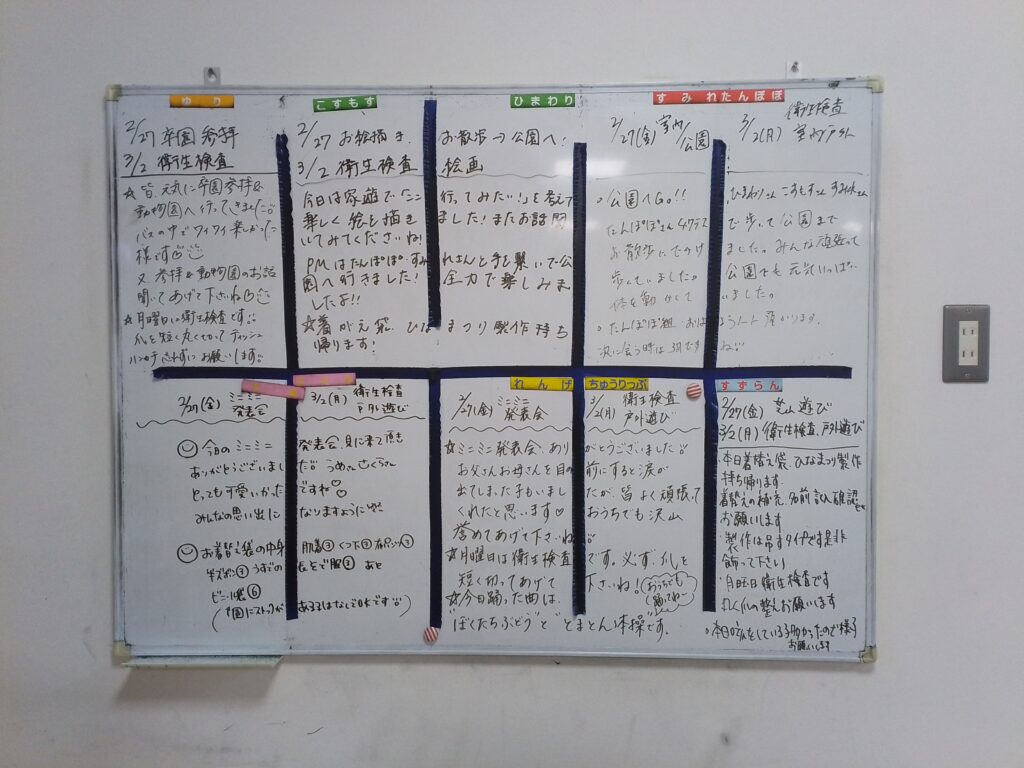 ゆり
2/27 卒園参拝
3/2 衛生検査
☆皆元気に卒園参拝&
動物園へ行ってきました
バスの中でワイワイ楽しかった
様です
又、参拝&動物園のお話
聞いてあげて下さいね
☆月曜日は衛生検査です
爪を短く丸く切って ティッシュ
ハンカチ忘れずに お願いします
こすもす
ひまわり
2/27 お絵描き、お散歩→公園へ!
3/2 衛生検査 絵画
今日は家遊で「ここ行ってみたい!」を考えて
楽しく絵を描きました!またお話聞
いてみてくださいね!
PMはたんぽぽ・すみれさんと手を繋いで公
園へ行きました!全力で楽しみま
したよ!!
☆着がえ袋、ひなまつり製作持ち
帰ります!
すみれたんぽぽ
2/27(金) 室内/公園
3/2(月) 衛生検査 室内
公園へGo!!
ひまわりさん こすもすさん すみれさん
たんぽぽさん 4クラスで歩いて公園まで
お散歩にでかけました。みんな頑張って
歩いていました。公園でも元気いっぱい
体を動かしていました。
たんぽぽ組
次に会う時は3月ですね
2/27(金) ミニミニ発表会
3/2(月) 衛生検査 戸外遊び
今日のミニミニ発表会、見に来て頂き
ありがとうございました うめさん さくらさん
とっても可愛いかったですね♡
みんなの思い出になりますように
お着替え袋の中身 肌着③ くつ下③ 長ズボン①
半ズボン③ うすでの長そで服③ あと
ビニール袋⑥
(園にストックがある子はなしでOKです)
れんげ
ちゅうりっぷ
2/27(金) ミニミニ発表会
3/2(月) 衛生検査 戸外遊び
☆ミニミニ発表会、ありがとうございました
お父さんお母さんを目の前にすると涙が
出てしまった子もいましたが、皆よく頑張って
くれたと思います♡ おうちでも沢山
誉めてあげて下さいね
☆月曜日は衛生検査です。必ず、爪を
短く切ってあげて下さいね!
☆今日踊った曲は、
おうちでも踊ってね
"ぼくたちぶどう"と"とまとん体操"です。
すずらん
2/27(金) 芝山遊び
3/2(月) 衛生検査、戸外遊び
・本日着替え袋、ひなまつり製作
持ち帰ります。
着替えの補充、名前記入確認を
お願いします
・製作は吊すタイプです是非
飾って下さい
・月曜日 衛生検査です
爪の整えお願いします
・本日咳をしている子多かったので様子
お願いします